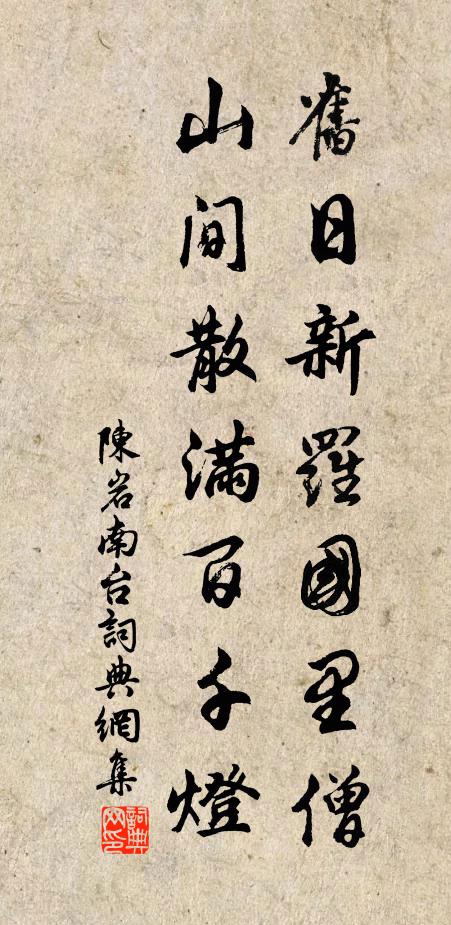 舊日新羅國里僧
山間散滿百千燈
陳岩南台詞典網集
詞典網印